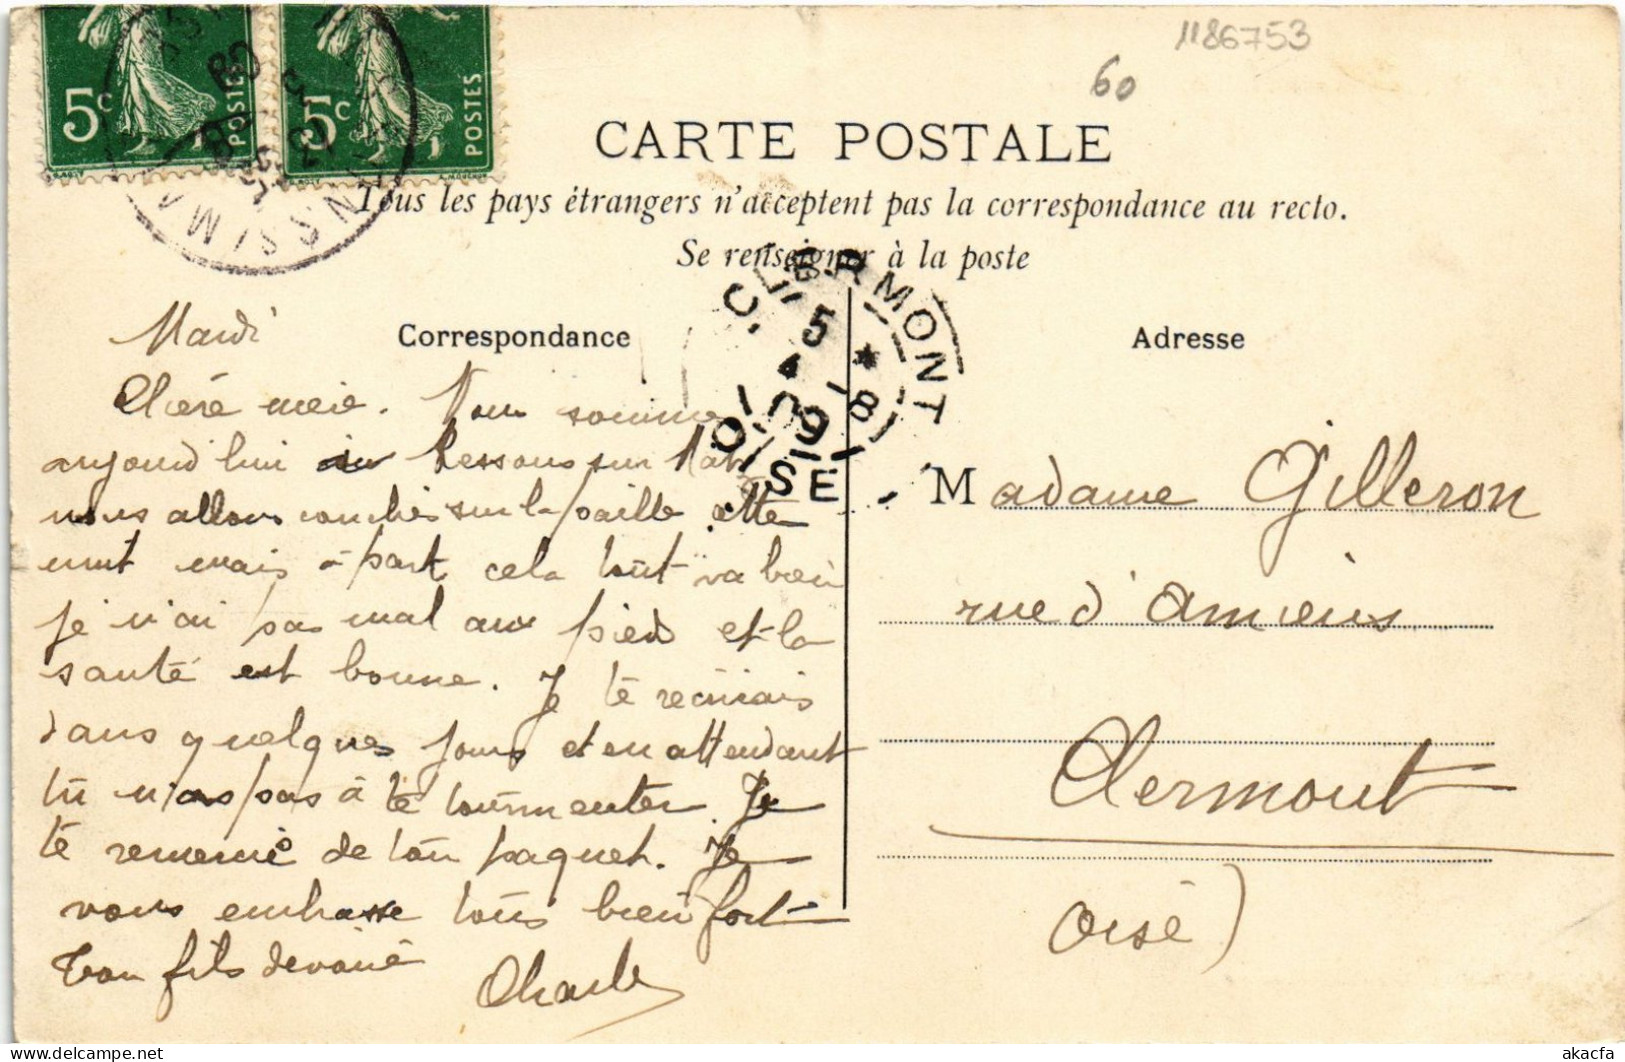 1186753
60
5c POSTES 5c POSTES
CARTE POSTALE
Tous les pays étrangers n'acceptent pas la correspondance au recto.
Se renseigner à la poste
CLERMONT
OISE
5
4
09
Correspondance
Adresse
Mardi
Chère mère. Nous somme
aujourd'hui à Ressons sur Matz
nous allons couchés sur la paille cette
nuit mais à part cela tout va bien
je n'ai pas mal aux pieds et la
santé est bonne. Je te récrirais
dans quelques jours et en attendant
tu n'as pas à te tourmenter. Je
te remercie de ton paquet. Je
vous embrasse tous bien fort
Ton fils dévoué
Charles
Madame Gilleron
rue d'Amiens
Clermont
Oise)
akacfa